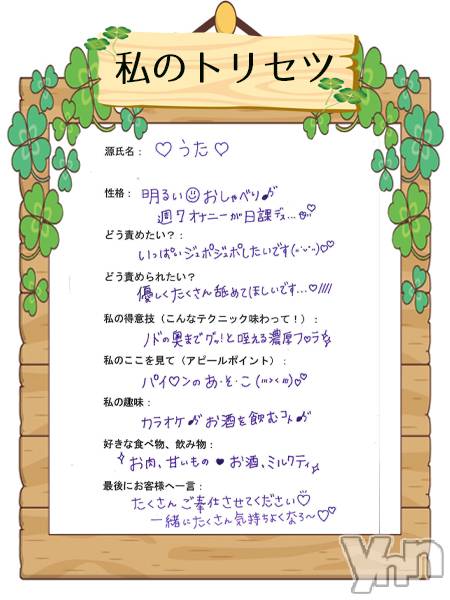 私のトリセツ
源氏名： ♡うた♡
性格： 明るい☺おしゃべり♪
週7オナニーが日課デス…♡
どう責めたい？：
いっぱいジュポジュポしたいです(˶ᵕᵕ˶)♡
どう責められたい？
優しくたくさん舐めてほしいです…♡////
私の得意技（こんなテクニック味わって！）：
ノドの奥までグッ！と咥える濃厚フ○ラ☆
私のここを見て（アピールポイント）：
パイ♡ンのあ・そ・こ(///>﹏<///)♡
私の趣味：
カラオケ♪お酒を飲むコト♪
好きな食べ物、飲み物：
お肉、甘いもの♥お酒、ミルクティ☆
最後にお客様へ一言：
たくさんご奉仕させてください♡
一緒にたくさん気持ちよくなろ〜♡♡
ynn